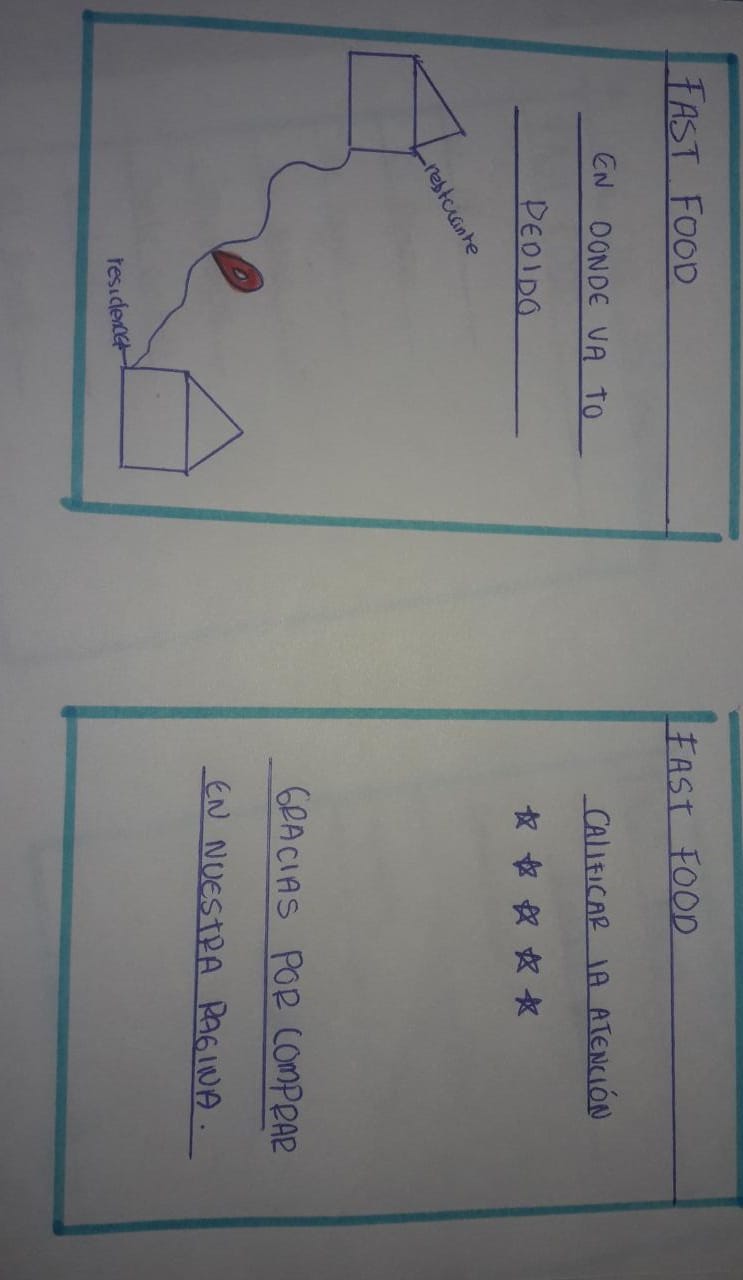 FAST FOOD
EN DONDE VA TO
PEDIDO
restaurante
residencia
FAST FOOD
CALIFICAR LA ATENCIÓN
GRACIAS POR COMPRAR
EN NUESTRA PAGINA.